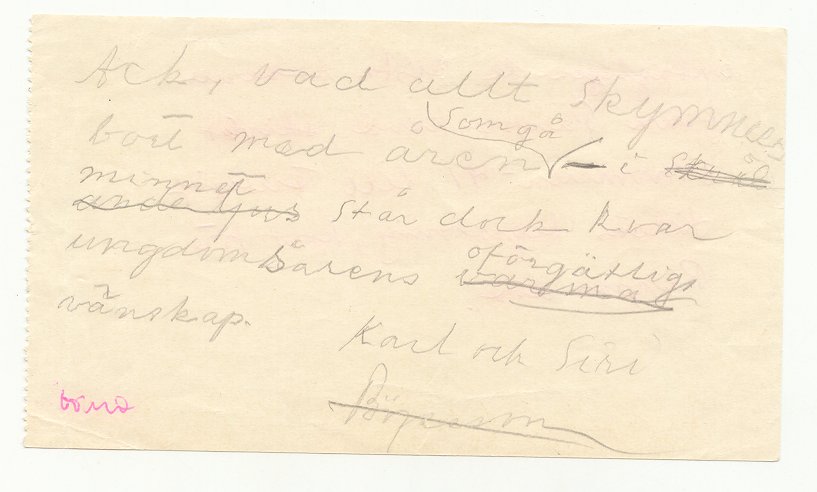 Ack, vad allt skymmes
bort med åren som gå – i
minnet står dock kvar
ungdomsårens oförgätliga
vänskap.
Karl och Siri
Börjesson